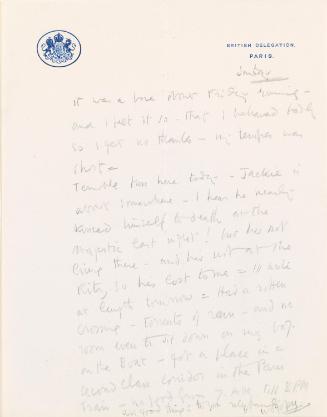 BRITISH DELEGATION,
PARIS.
Sunday
It was a bore about Friday evening –
and I felt it so – that I behaved badly
so I get no thanks – my temper was
short –
Terrible time here today – Jackie is
about somewhere – I hear he nearly
himself to death at the
Majestic last night! but he's not
living there – and he's not at the
Ritz, so he's lost to me = I'll write
at length tomorrow = Had a rotten
crossing – torrents of rain – and no
room even to sit down on my
on the Boat – got a place in a
second class corridor in the Paris
train – no food from 7. AM till 8 PM